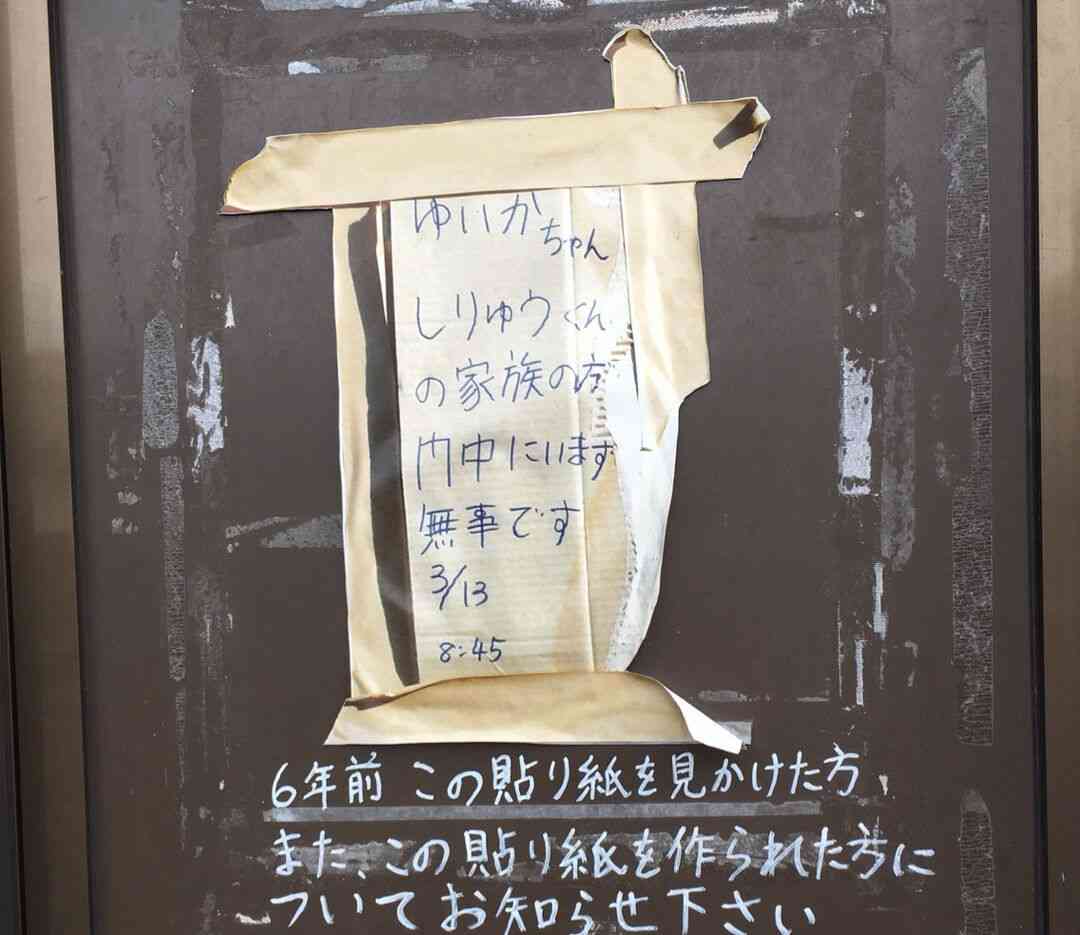 ゆいか
ちゃん
しりゅうくん
の家族の方
門中にいます
無事です
3/13
8:45
6年前 この貼り紙を見かけた方、
また、この貼り紙を作られた方に
ついてお知らせ下さい